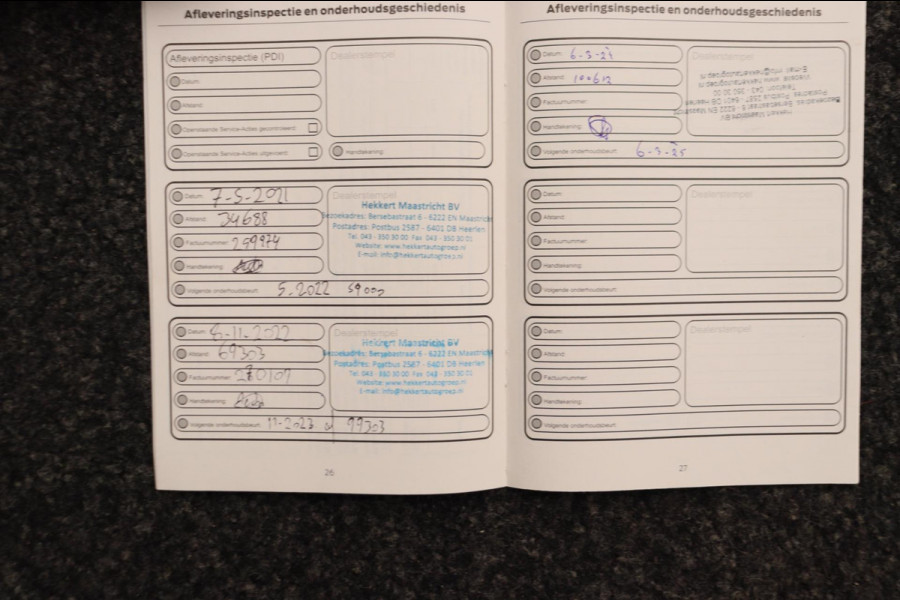 Afleveringsinspectie en onderhoudsgeschiedenis
Afleveringsinspectie (PDI)
Dealerstempel
Datum:
Afstand:
Factuurnummer:
Openstaande Service-Acties gecontroleerd:
Openstaande Service-Acties uitgevoerd:
Handtekening:
Datum: 7-5-2021
Afstand: 34688
Factuurnummer: 299974
Handtekening:
Volgende onderhoudsbeurt: 5.2022 59000
Hekkert Maastricht BV
Bezoekadres: Bersebastraat 6 - 6222 EN Maastricht
Postadres: Postbus 2587 - 6401 DB Heerlen
Tel. 043 - 350 30 00 Fax 043 - 350 30 01
Website: www.hekkertautogroep.nl
E-mail: info@hekkertautogroep.nl
Datum: 8-11-2022
Afstand: 69303
Factuurnummer:
Handtekening:
Volgende onderhoudsbeurt: 11-2023 of 99303
Dealerstempel
Hekkert Maastricht BV
Bezoekadres: Bersebastraat 6 - 6222 EN Maastricht
Postadres: Postbus 2587 - 6401 DB Heerlen
Tel. 043 - 350 30 00 Fax 043 - 350 30 01
Website: www.hekkertautogroep.nl
E-mail: info@hekkertautogroep.nl
26
Afleveringsinspectie en onderhoudsgeschiedenis
Datum: 6-3-24
Afstand: 100612
Factuurnummer:
Handtekening:
Volgende onderhoudsbeurt: 6-3-25
Dealerstempel
Hekkert Maastricht BV
Bezoekadres: Bersebastraat 6 - 6222 EN Maastricht
Postadres: Postbus 2587 - 6401 DB Heerlen
Telefoon: 043 - 350 30 00
Website: www.hekkertautogroep.nl
E-mail: info@hekkertautogroep.nl
Datum:
Afstand:
Factuurnummer:
Handtekening:
Volgende onderhoudsbeurt:
Dealerstempel
Datum:
Afstand:
Factuurnummer:
Handtekening:
Volgende onderhoudsbeurt:
Dealerstempel
27